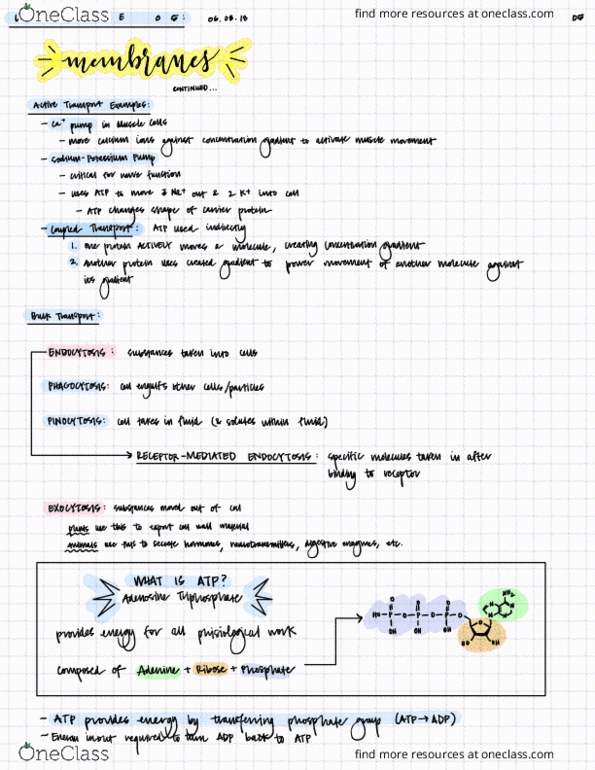 OneClass
find more resources at oneclass.com
L E O G: 06.08.18
membranes
CONTINUED...
Active Transport Examples:
- Ca⁺ pump in Muscle Cells
- more calcium ions against concentration gradient to activate muscle movement
- Sodium-Potassium Pump
- critical for nerve function
- uses ATP to move 3 Na⁺ out & 2 K⁺ into cell
- ATP changes shape of carrier protein
- Coupled Transport: ATP used indirectly
1. one protein ACTIVELY moves a molecule, creating concentration gradient
2. Another protein uses created gradient to power movement of another molecule against
its gradient
Bulk Transport:
ENDOCYTOSIS: substances taken into cells
PHAGOCYTOSIS: cell engulfs other cells/particles
PINOCYTOSIS: cell takes in fluid (& solutes within fluid)
RECEPTOR-MEDIATED ENDOCYTOSIS: specific molecules taken in after
binding to receptor
EXOCYTOSIS: substances moved out of cell
plants use this to export cell wall material
animals use this to secrete hormones, neurotransmitters, digestive enzymes, etc.
WHAT IS ATP?
Adenosine Triphosphate
provides energy for all physiological work
composed of Adenine + Ribose + Phosphate
- ATP provides energy by transferring phosphate group (ATP→ADP)
- Energy input required to turn ADP back to ATP
OneClass
find more resources at oneclass.com